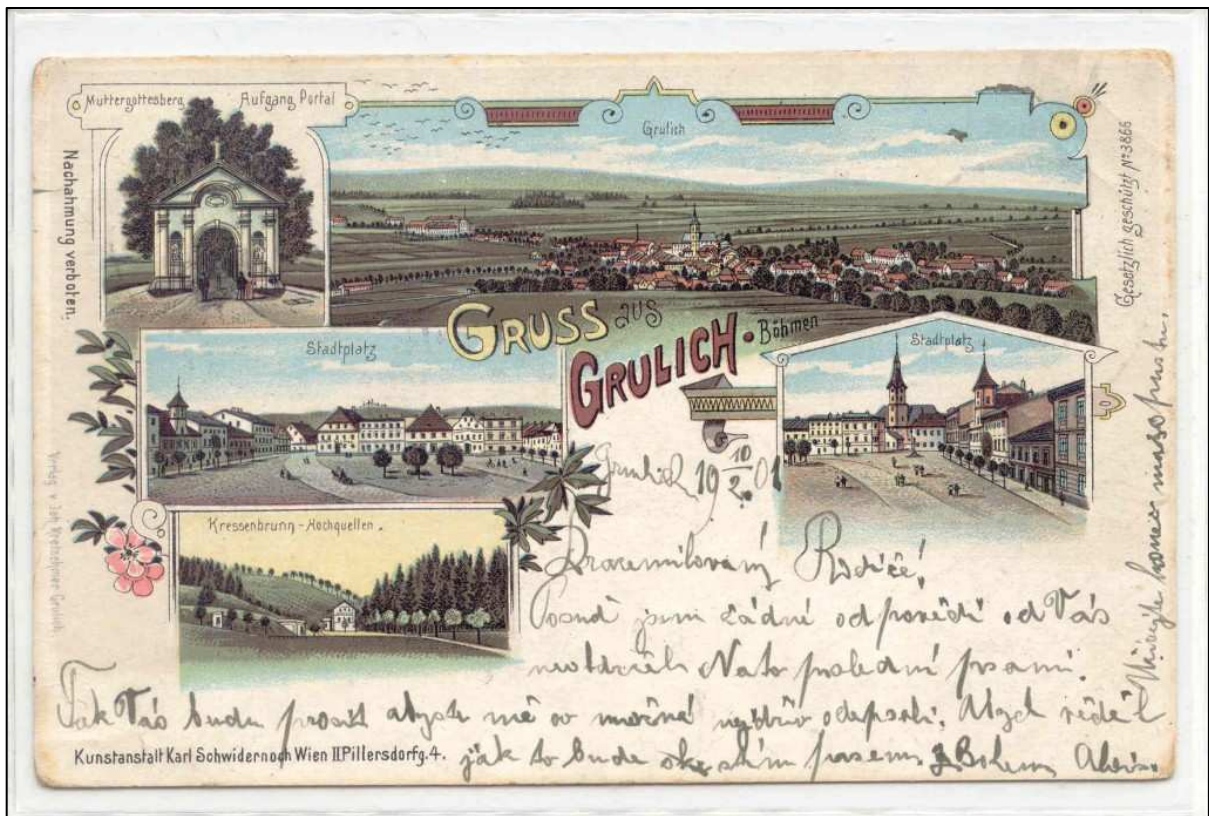 Muttergottesberg Aufgang Portal
Grulich
Nachahmung verboten.
Gesetzlich geschützt No 3866
GRUSS aus
GRULICH. Böhmen
Stadtplatz
Stadtplatz
Kressenbrunn - Hochquellen.
Verlag v. Joh. Grulich.
Grulich 19 10/2. 01
Drazemilovaný Rodiče!
Posud jsem žádné odpovědi od Vás
neobdržel Na to poslední psaní.
Tak Vás budu prosit abyste mě co možná nejdřív odepsali. Abych věděl
jak to bude s tím pasem z Bohem Alois.
konec masopustu.
Kunstanstalt Karl Schwidernoch Wien II Pillersdorfg. 4.